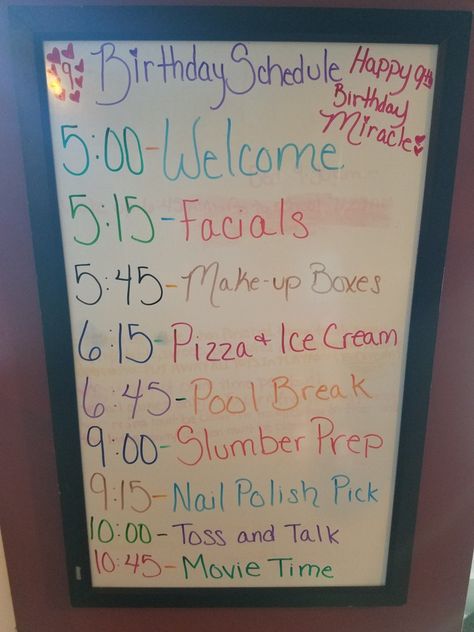 9 Birthday Schedule
Happy 9th
Birthday
Miracle
5:00-Welcome
5:15-Facials
5:45-Make-up Boxes
6:15-Pizza & Ice Cream
6:45-Pool Break
9:00-Slumber Prep
9:15-Nail Polish Pick
10:00-Toss and Talk
10:45-Movie Time